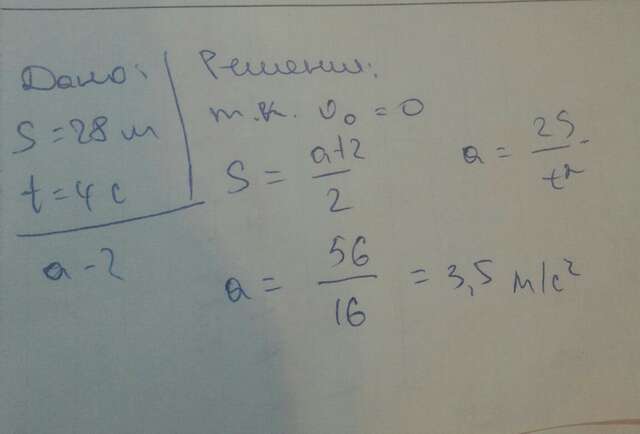 Дано:
S = 28 м
t = 4 с
a - ?
Решение:
т.к. υ₀ = 0
S = at²/2
a = 2S/t²
a = 56/16 = 3,5 м/с²